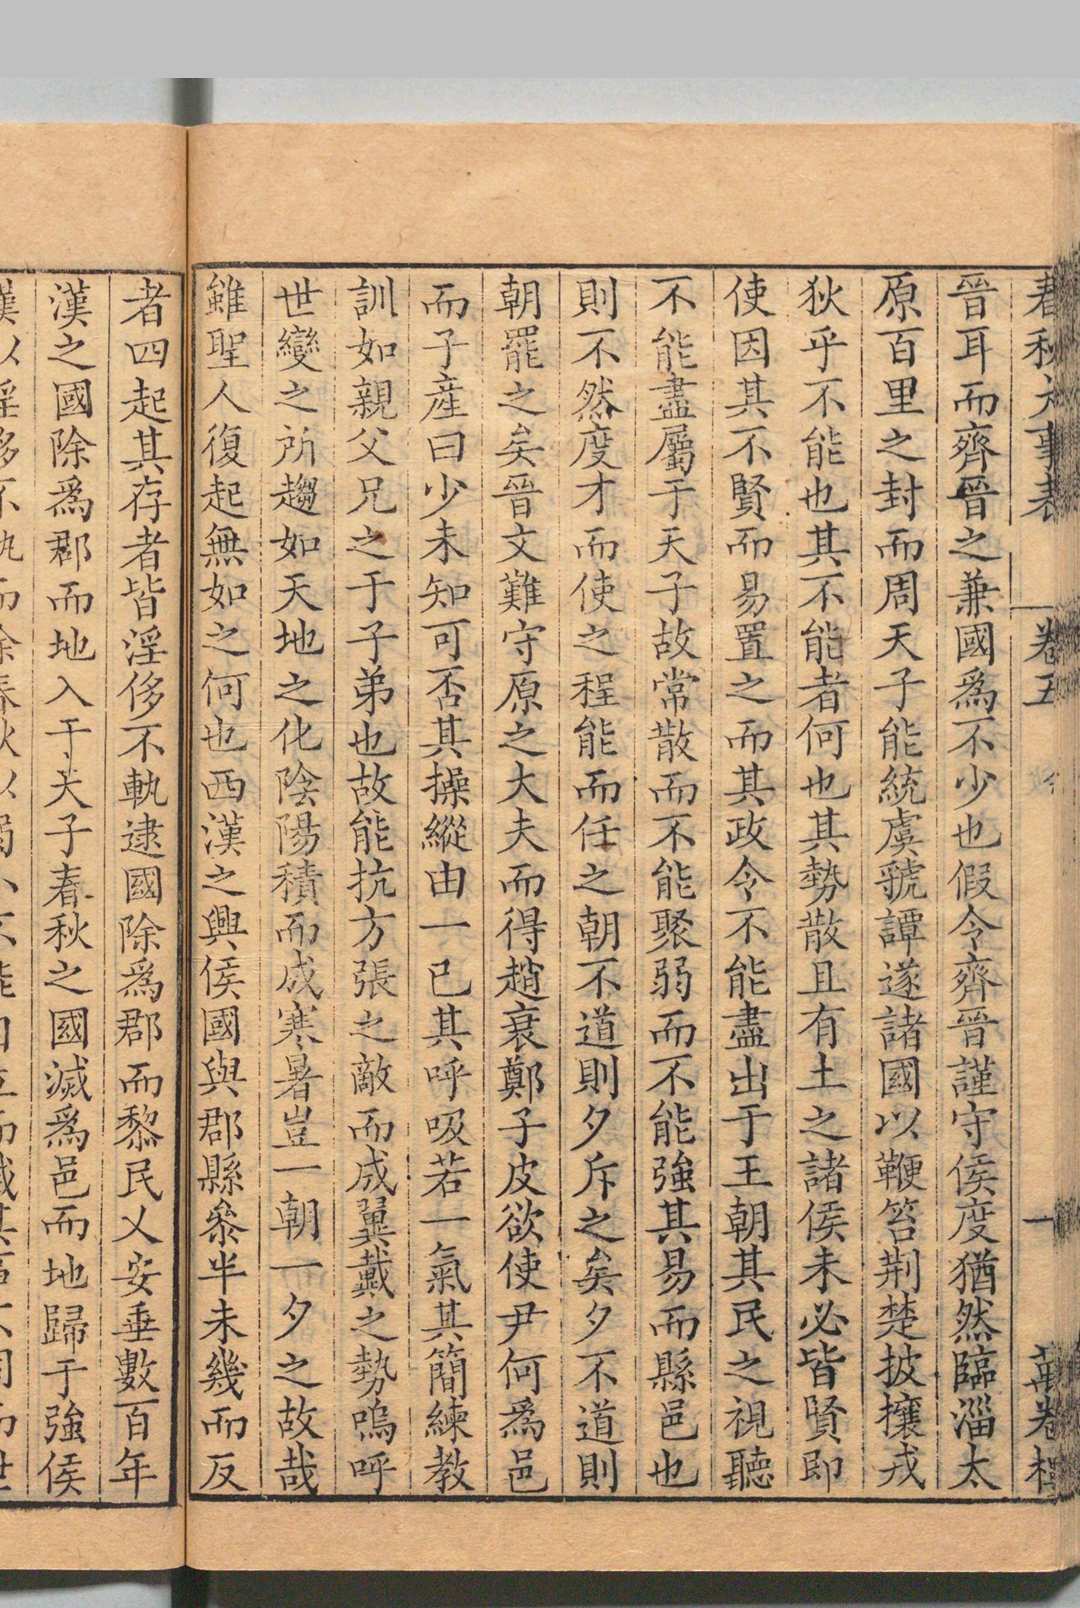 春秋大事表 卷五 一 萬卷樓
晉耳而齊晉之兼國爲不少也假令齊晉謹守侯度猶然臨淄太
原百里之封而周天子能統虞虢譚遂諸國以鞭笞荆楚披攘戎
狄乎不能也其不能者何也其勢散且有土之諸侯未必皆賢即
使因其不賢而易置之而其政令不能盡出于王朝其民之視聽
不能盡屬于天子故常散而不能聚弱而不能強其易而縣邑也
則不然度才而使之程能而任之朝不道則夕斥之矣夕不道則
朝罷之矣晉文難守原之大夫而得趙衰鄭子皮欲使尹何爲邑
而子產曰少未知可否其操縱由一已其呼吸若一氣其簡練教
訓如親父兄之于子弟也故能抗方張之敵而成翼戴之勢嗚呼
世變之所趨如天地之化陰陽積而成寒暑豈一朝一夕之故哉
雖聖人復起無如之何也西漢之興侯國與郡縣參半未幾而反
者四起其存者皆淫侈不軌逮國除爲郡而黎民乂安垂數百年
漢之國除爲郡而地入于天子春秋之國滅爲邑而地歸于強侯
漢以淫侈不軌而除春秋以弱小不能自立而滅其不同而世